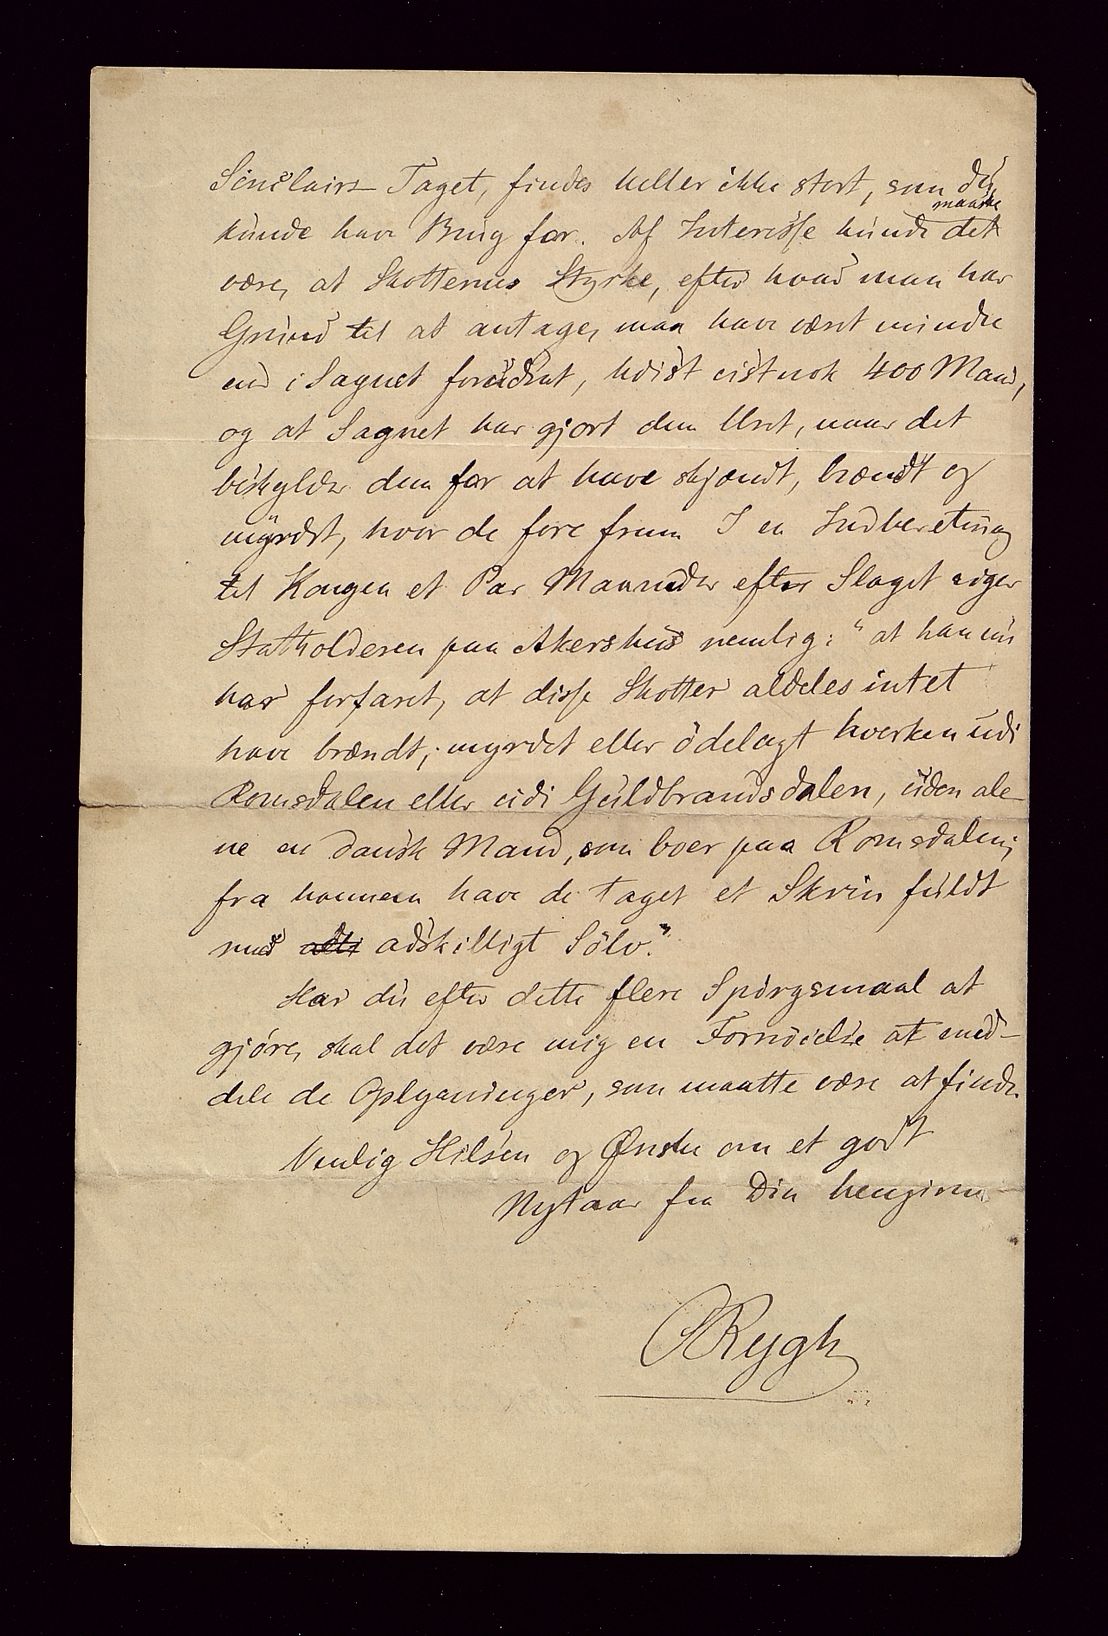 Sinclairs Toget, findes heller ikke stort, som du
kunde have Brug for. Af Interesse kunde maaske det
være, at Skotternes Styrke, efter hvad man har
Grund til at antage, maa have været mindre
end i Sagnet forudsat, höist vistnok 400 Mand,
og at Sagnet har gjort dem Uret, naar det
beskylder dem for at have skjændt, brændt og
myrdet, hvor de fore frem. I en Indberetning
til Kongen et Par Maaneder efter Slaget siger
Statholderen paa Akershus nemlig: "at han nu
har forfaret, at disse Skotter aldeles intet
have brændt, myrdet eller ödelagt hverken udi
Romsdalen eller udi Guldbrandsdalen, uden ale-
ne en dansk Mand, som boer paa Romsdalen;
fra hannem have de taget et Skrin fuldt
med adskilligt Sölv."
Har du efter dette flere Spörgsmaal at
gjöre, skal det være mig en Fornöielse at med-
dele de Oplysninger, som maatte være at finde.
Venlig Hilsen og Ønske om et godt
Nytaar fra Din hengivne
ORygh